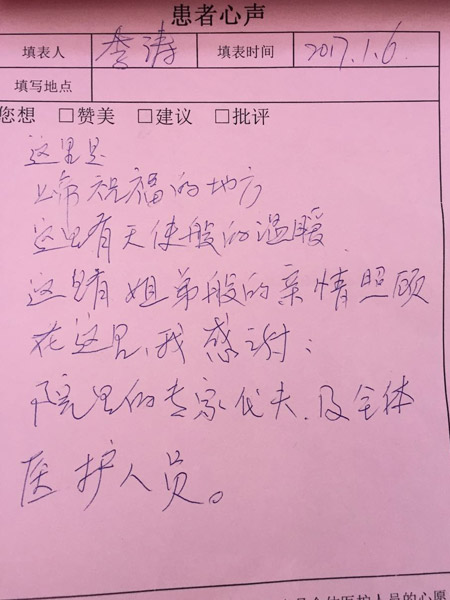 患者心声
填表人 李涛 填表时间 2017.1.6
填写地点
您想 □赞美 □建议 □批评
这里是
上帝祝福的地方
这里有天使般的温暖
这里有姐弟般的亲情照顾
在这里,我感谢:
院里的专家代夫及全体
医护人员。
全体医护人员的心愿